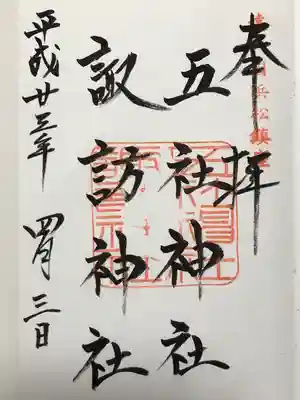 奉拝
浜松鎮
五社神社
諏訪神社
平成廿三年 四月 三日